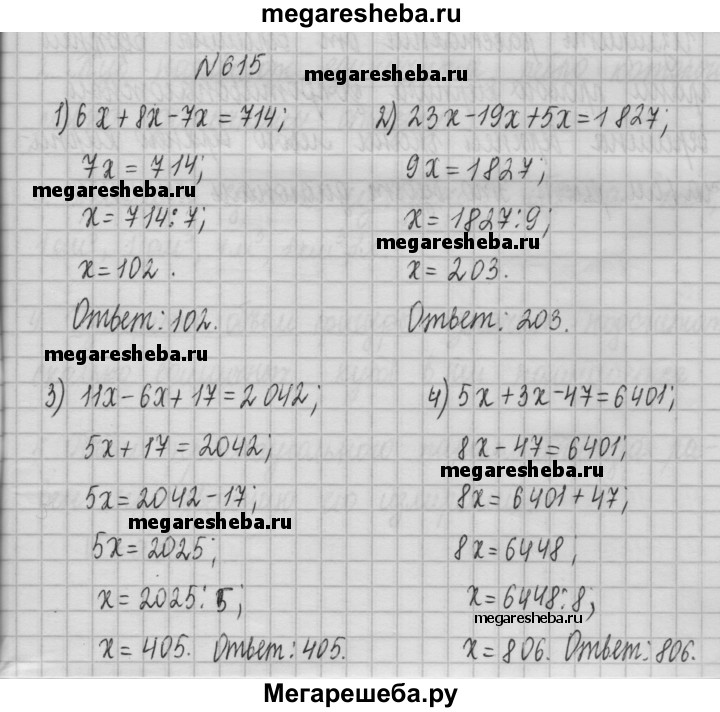 megaresheba.ru
N615
megaresheba.ru
1) 6x + 8x - 7x = 714;
7x = 714;
megaresheba.ru
x = 714:7;
x = 102.
Ответ: 102.
2) 23x - 19x + 5x = 1 827;
9x = 1827;
x = 1827:9;
megaresheba.ru
x = 203.
Ответ: 203.
megaresheba.ru
3) 11x - 6x + 17 = 2 042;
5x + 17 = 2042;
5x = 2042 - 17;
megaresheba.ru
5x = 2025;
x = 2025:5;
x = 405. Ответ: 405.
4) 5x + 3x - 47 = 6401;
8x - 47 = 6401;
megaresheba.ru
8x = 6401 + 47;
8x = 6448;
x = 6448:8;
megaresheba.ru
x = 806. Ответ: 806.
Мегарешеба.ру